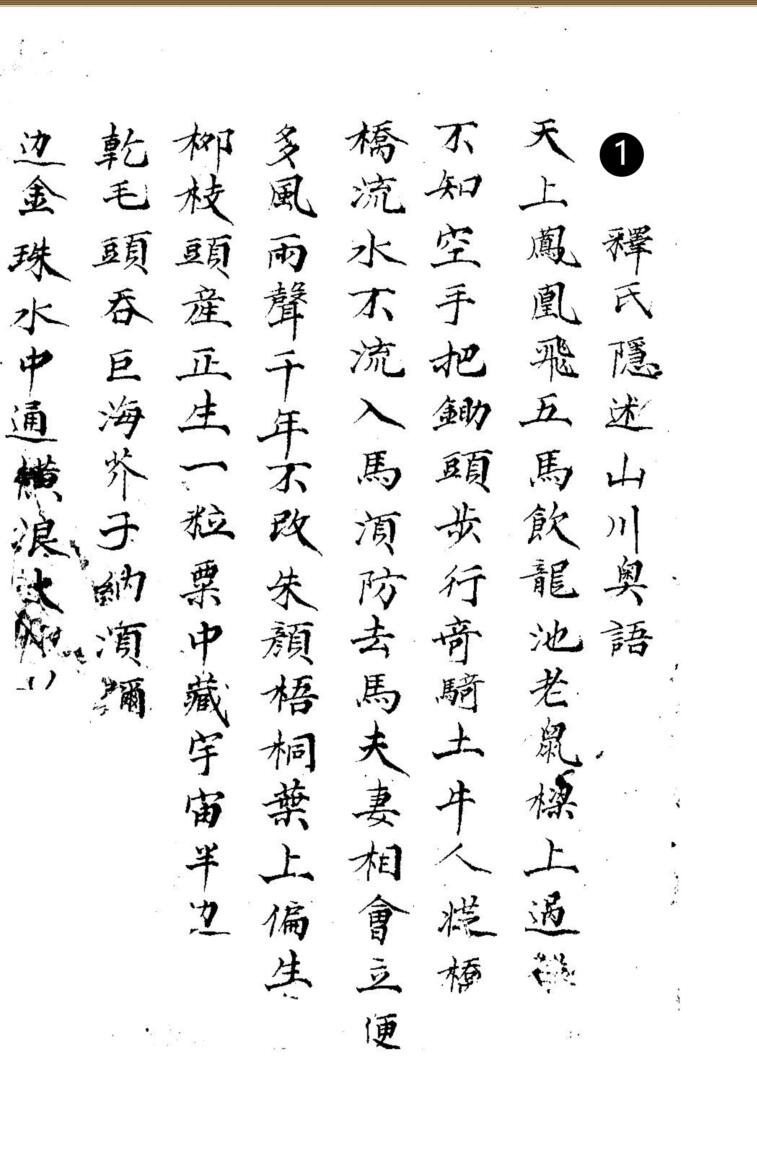 1
釋氏隱述山川奥語
天上鳳凰飛五馬飲龍池老鼠樑上過
不知空手把鋤頭步行奇騎土牛人從橋
橋流水不流入馬湏防去馬夫妻相會立便
多風雨聲千年不改朱顏梧桐葉上偏生
柳枝頭産正生一粒粟中藏宇宙半边
乹毛頭吞巨海芥子納湏彌
边金珠水中通橫浪大